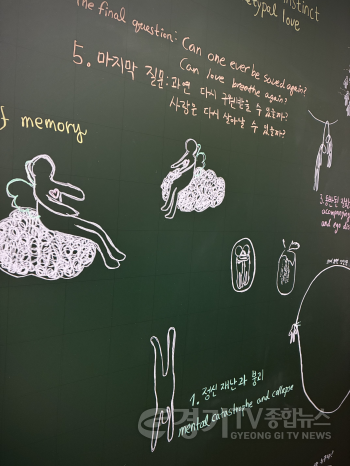 instinct
etypal love
The final question: Can one ever be saved again?
Can love breathe again?
5. 마지막 질문: 과연 다시 구원받을 수 있을까?
사랑은 다시 살아날 수 있을까?
f memory
3.
accompanying
and ego
1. 정신 재난과 붕괴
mental catastrophe and collapse
경기TV종합뉴스
GYEONG GI TV NEWS